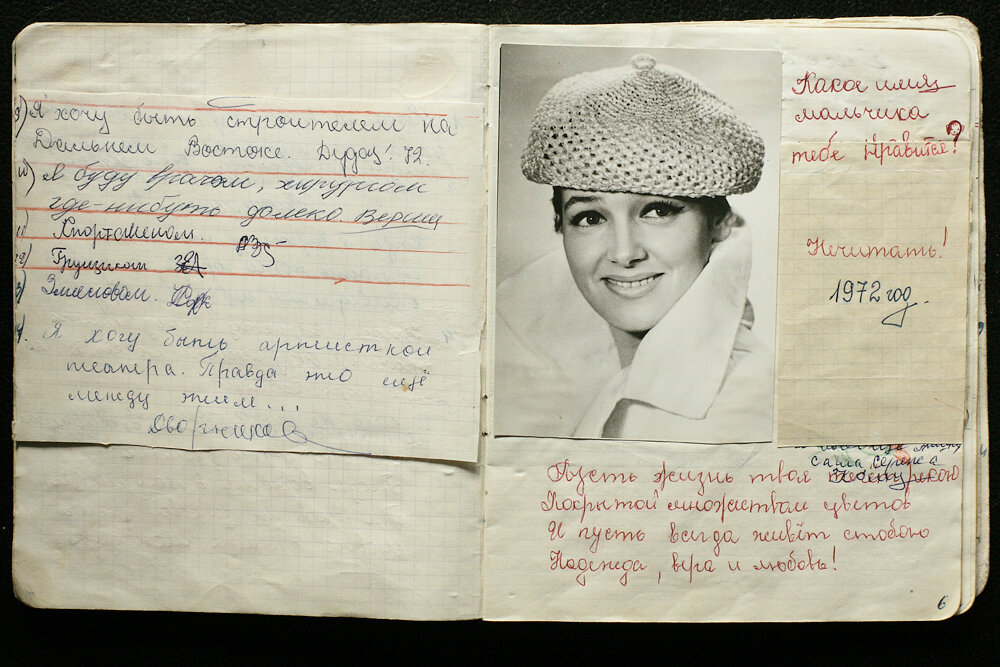 9) Я хочу быть строителем на
Дальнем Востоке. 72.
10) Я буду врачом, хирургом
где-нибудь далеко.
11)
12) Грузчиком
3)
14. Я хочу быть артисткой
театра. Правда это ещё
между тем...
Какое имя
мальчика
тебе нравится?
Нечитать!
1972 год.
Саша Серёжа
Пусть жизнь твоя
Покрытой множеством цветов
И пусть всегда живёт стобою
Надежда, вера и любовь!
6